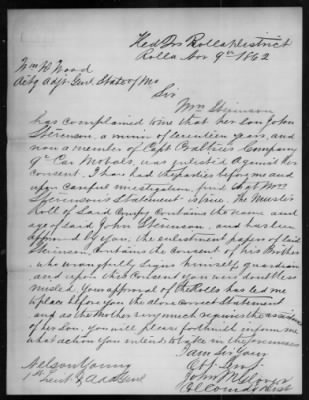 Hed Qrs Rolla District
Rolla Nov 9th 1862
Wm H Wood
Actg Adjt Genl State of Mo
Sir
Mrs Stevenson
has complained to me that her son John
Stevenson, a minor of seventeen years, and
now a member of Capt Company
9th Cav Mo Vols, was enlisted against her
consent. I have had the parties before me and
upon careful investigation, find that Mrs
Stevenson's Statement is true. The Muster
Roll of Said Compy contains the name and
age of said John Stevenson, and has been
approved by you, the enlistment papers of said
Stevenson, contains the consent of his Brother
who wrongfully signs himself guardian
and upon this Consent you were doubtless
misled. Your approval of the Rolls has led me
to place before you the above correct Statement
and as the Mother very much requires the assistance
of her Son, you will please forthwith inform me
what action you intend to take in the premises
I am Sir Your
Obt Svt
John M Glover
Col Comdg Dist
Nelson Young
1st Lieut & A A A Genl